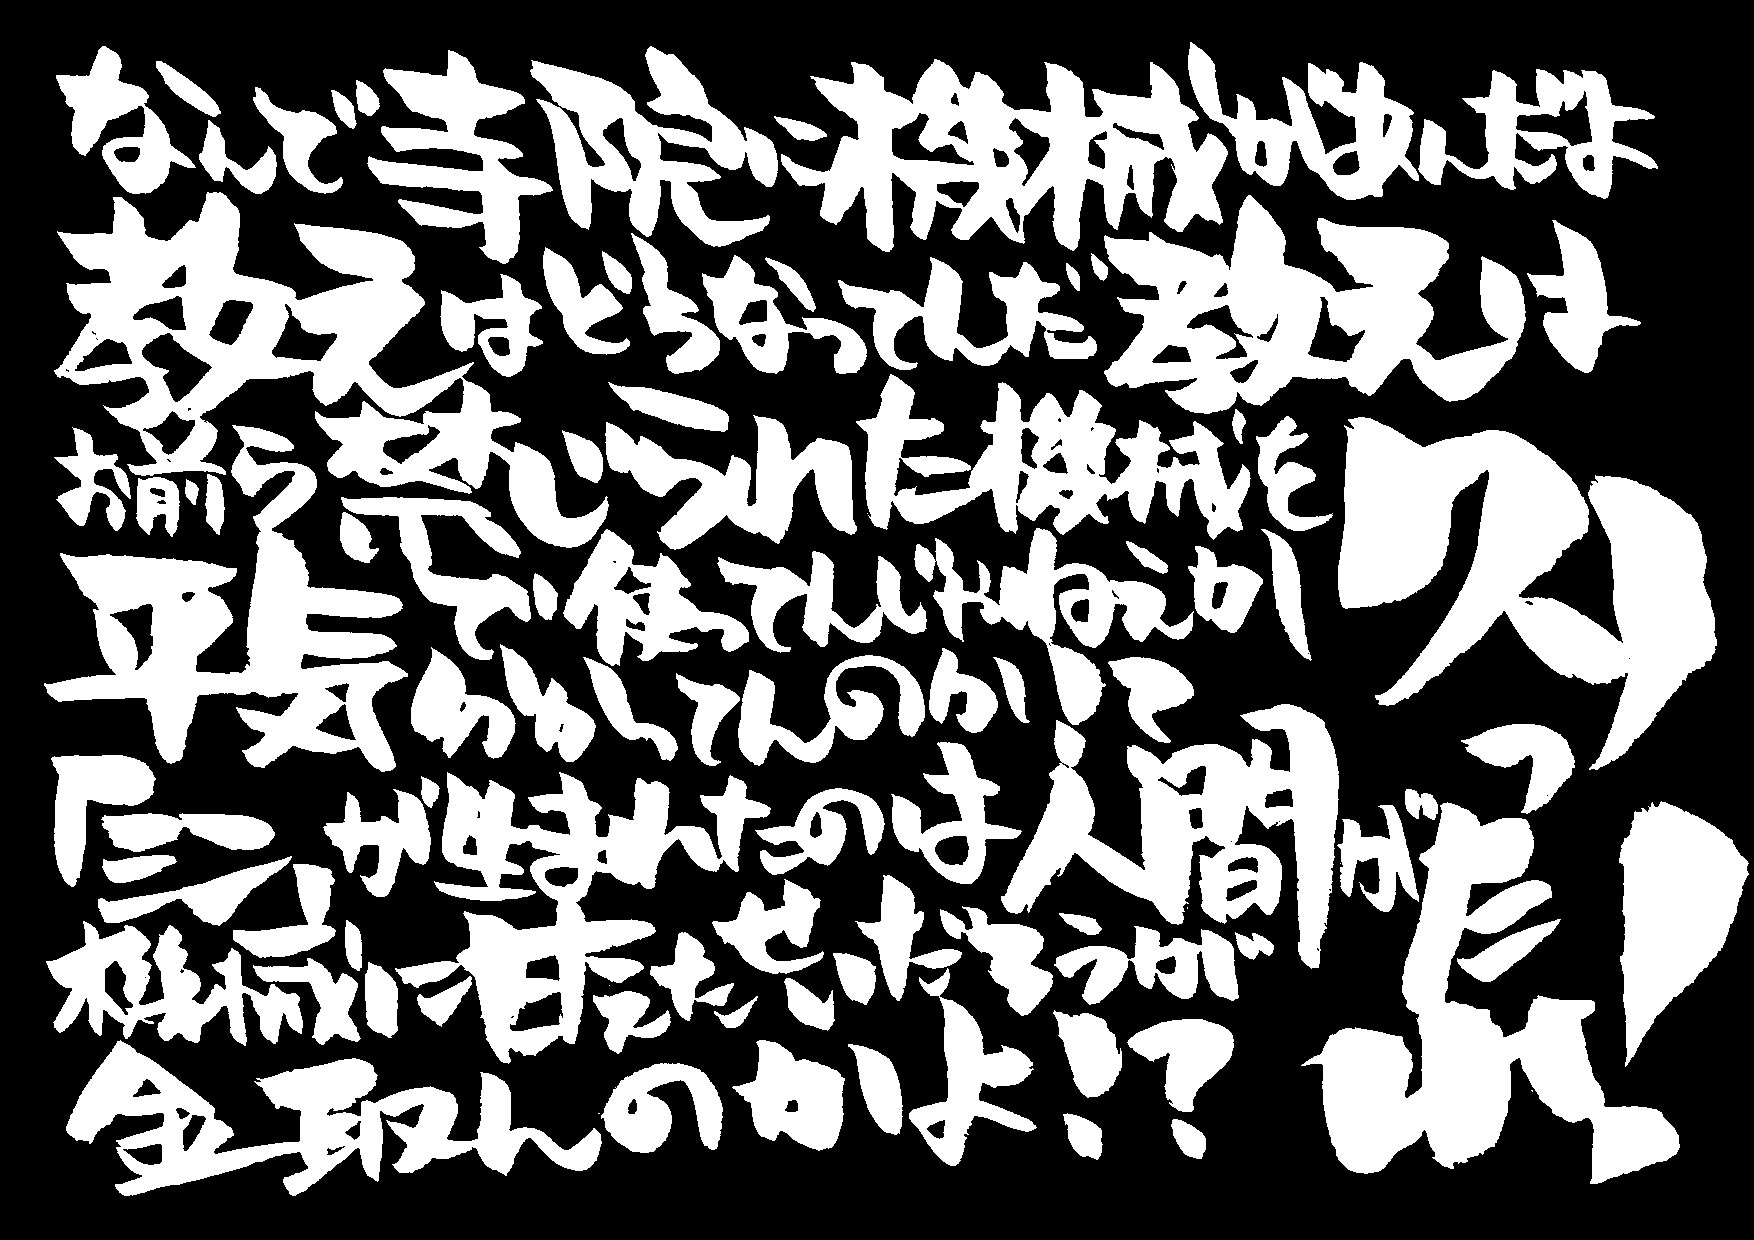 なんで寺院に機械があんだよ
教えはどうなってんだ教えは
お前ら禁じられた機械を
平気で使ってんじゃねえか
わかってんのか!?
「シン」が生まれたのは人間が
機械に甘えたせいだろうが
金取んのかよ!?
クソったれ!